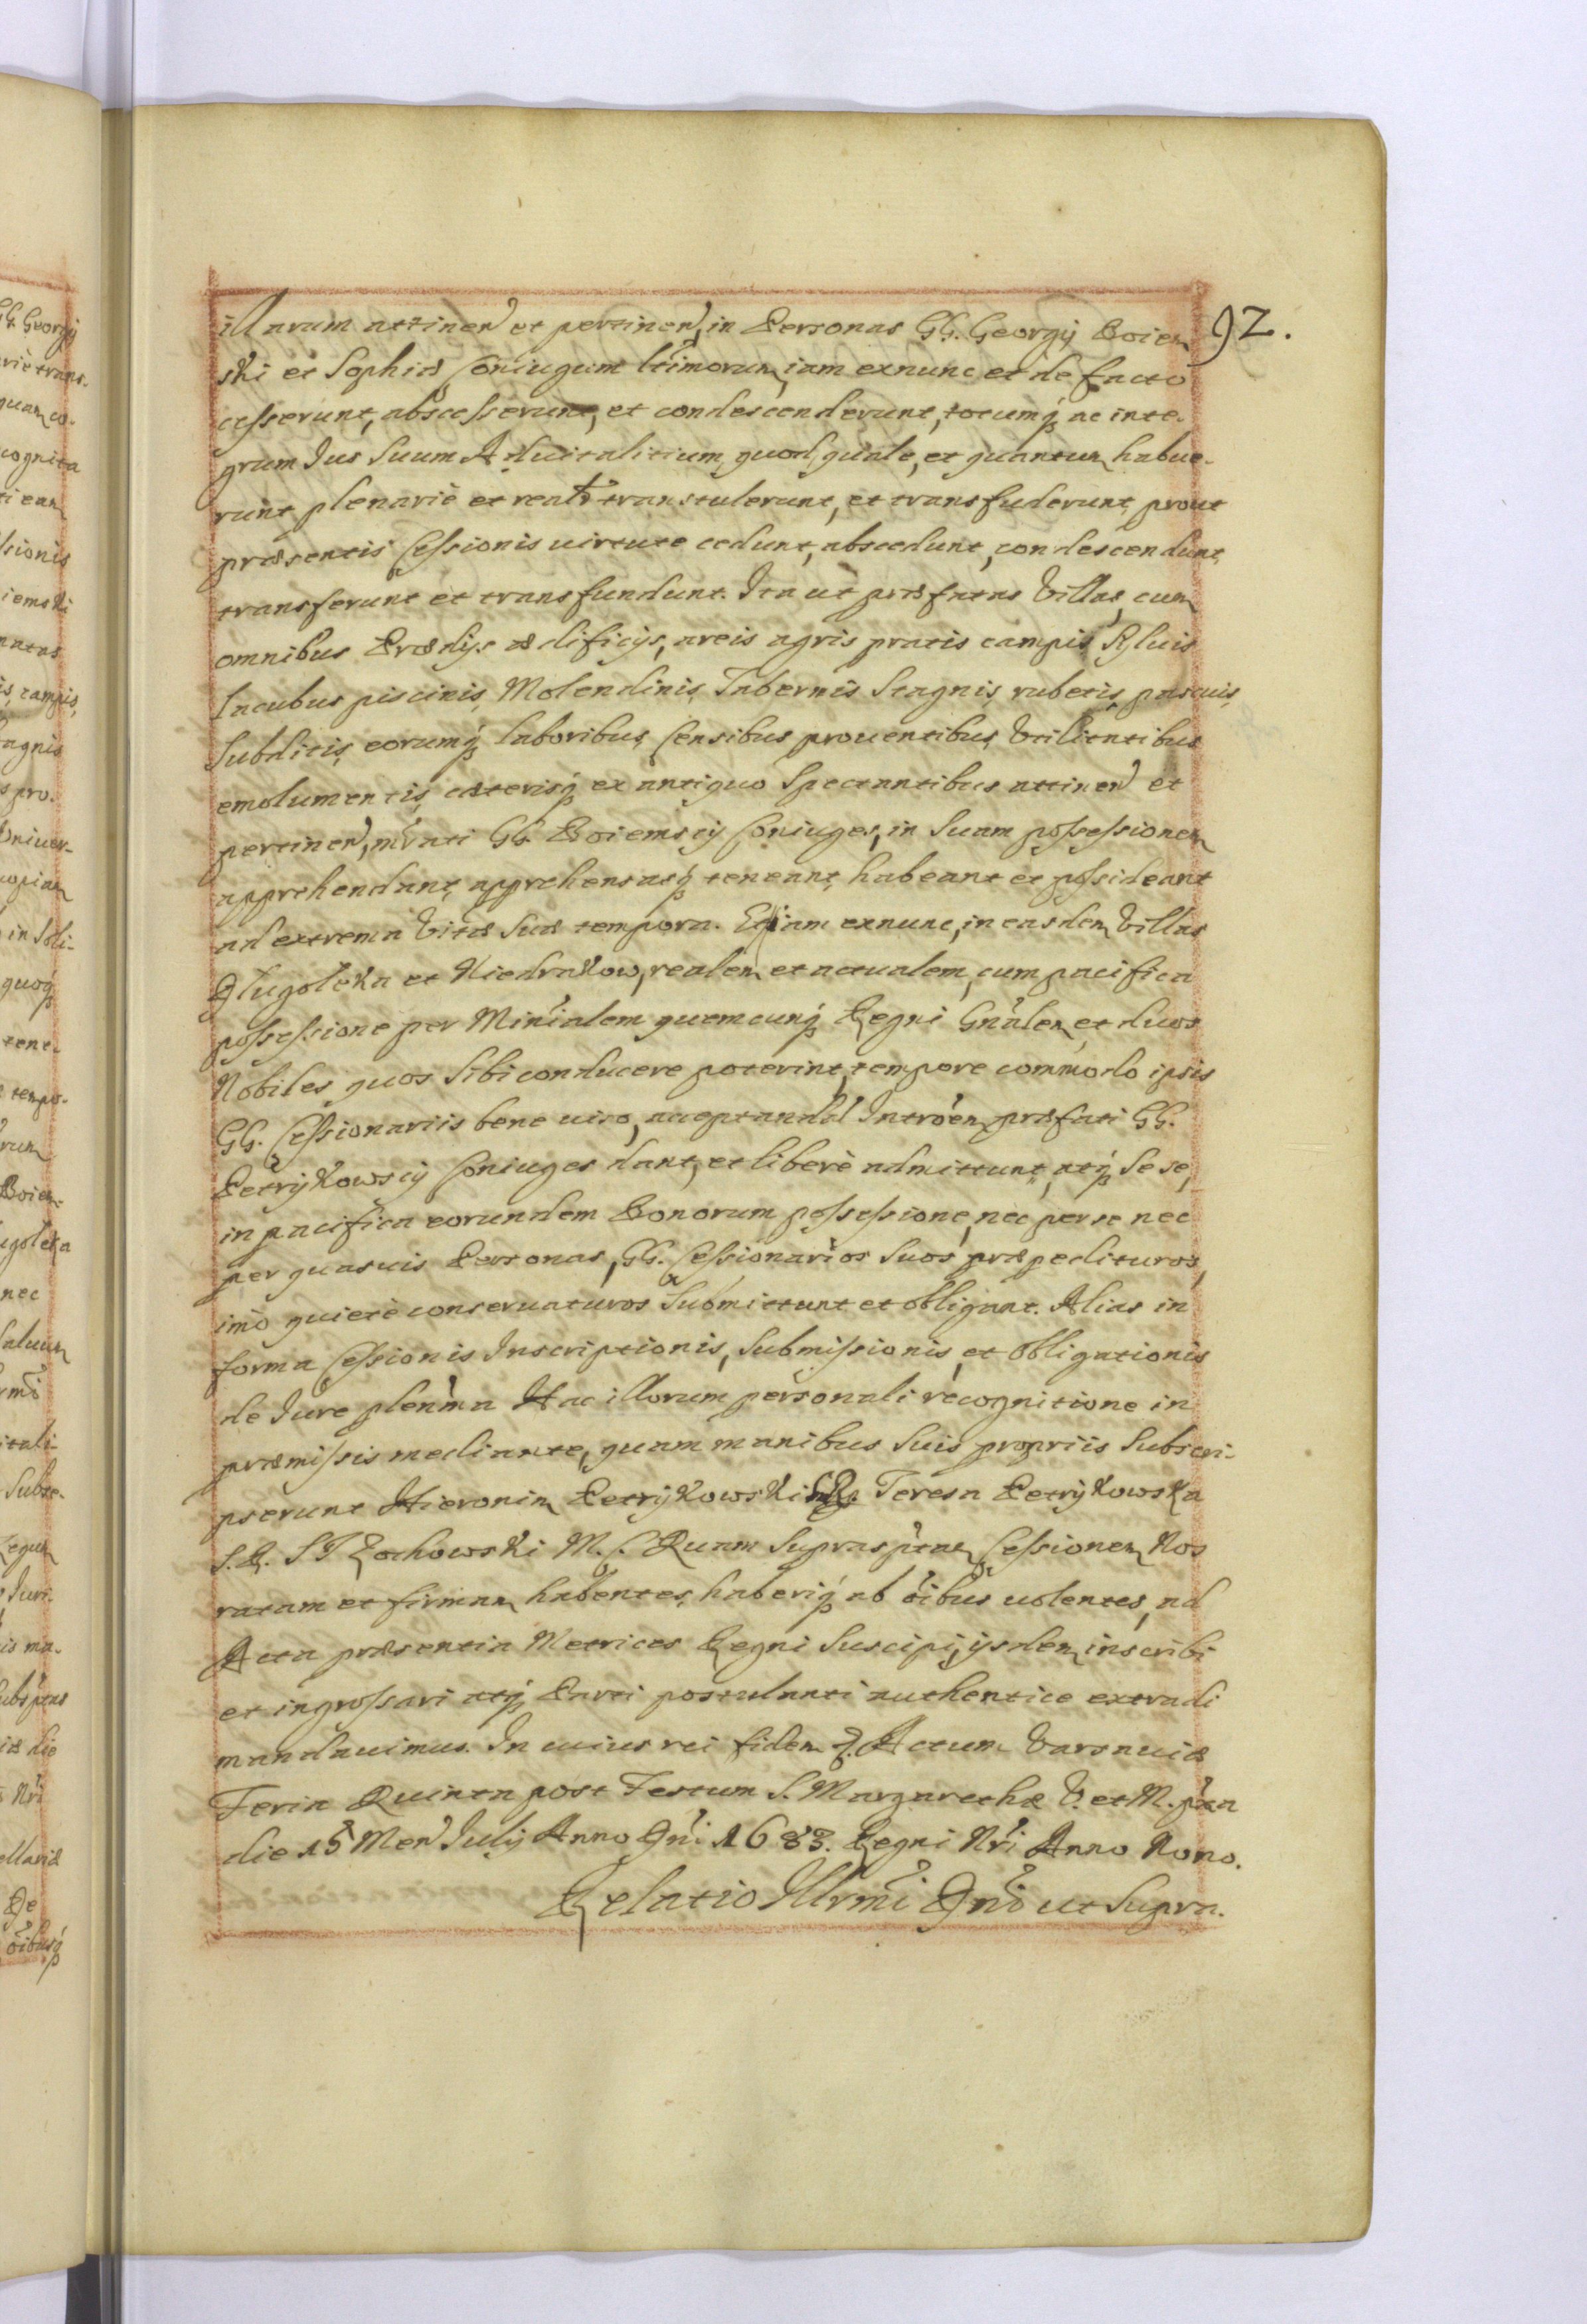 92.
illarum attinen et pertinen, in Personas GG. Georgij Boiem
ski et Sophiæ Coniugum ltimorum, iam exnunc et de facto
cesserunt, abscesserunt, et condescenderunt, totumq ac inte-
grum Ius Suum Aduitalitium, quod, quale, et quantum habue-
runt plenariè et realr transtulerunt, et transfuderunt, prout
præsentis Cessionis uirtute cedunt, abscedunt, condescendunt,
transferunt et transfundunt. Ita ut præfatas Villas, cum
omnibus Prædijs ædificijs, areis agris pratis campis Syluis
Lacubus piscinis, Molendinis, Tabernis Stagnis, rubetis, pascuis,
Subditis, eorumq laboribus, Censibus prouentibus, Vtilitatibus
emolumentis, cæterisq ex antiquo Spectantibus attinen et
pertinen, mrati GG. Boiemscij Coniuges, in Suam possessionem
apprehendant, apprehensasq teneant, habeant et possideant
ad extrema Vitæ Suæ tempora. Etiam exnunc, in easdem Villas
Długołeka et Niedrakow, realem et actualem, cum pacifica
possessione per Minialem quemcunq Regni Gnalem, et duos
Nobiles, quos Sibi conducere poterint, tempore commodo ipsis
GG. Cessionariis bene uiso, acceptandā Introēm præfati GG.
Petrykowscij Coniuges dant, et liberè admittunt, atq Se se,
in pacifica eorundem Bonorum possessione, nec per se nec
per quasuis Personas, GG. Cessionarios Suos præpedituros,
imò quietè conseruaturos Submittunt et obligant. Alias in
forma Cessionis Inscriptionis, Submissionis, et Obligationis
de Iure plenma Hac illorum personali recognitione in
præmissis mediante, quam manibus Suis propriis Subscri-
pserunt Hieronim Petrykowski Teresa Petrykowska
S.R. Zochowski M.C. Quam Suprasptam Cessionem Nos
ratam et firmam habentes, haberiq ab oībus uolentes, ad
Acta præsentia Metrices Regni Suscipi, ijsdem inscribi
et ingrossari atq Parti postulanti authentice extradi
mandauimus. In cuius rei fidem &. Actum Varsauiæ
Feria Quinta post Festum S. Margarethæ V. et M. pxa
die 15 Men Julij Anno Dni 1683. Regni Nri Anno Nono.
Relatio Illrmi Dni ut Supra.